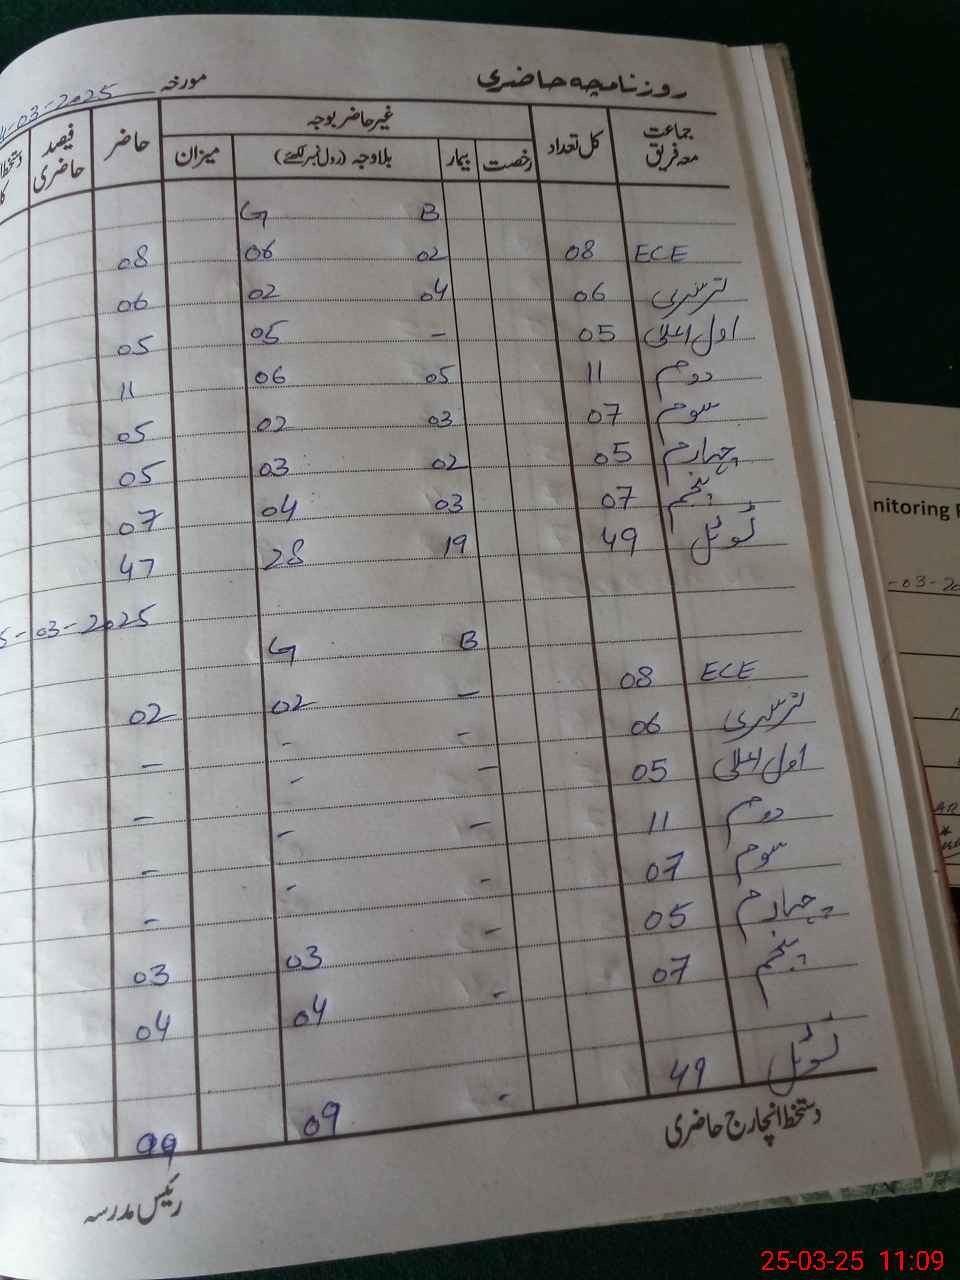 روزنامچہ حاضری مورخہ -03-2025
جماعت معہ فریق کل تعداد غیر حاضر بوجہ حاضر فیصد حاضری
رخصت بیمار بلاوجہ (رول نمبر لکھئے) میزان
B G
ECE 08 02 06 08
نرسری 06 04 02 06
اول اعلیٰ 05 - 05 05
دوم 11 05 06 11
سوم 07 03 02 05
چہارم 05 02 03 05
پنجم 07 03 04 07
ٹوٹل 49 19 28 47
5-03-2025
B G
ECE 08 - 02 02
نرسری 06 - - -
اول اعلیٰ 05 - - -
دوم 11 - - -
سوم 07 - - -
چہارم 05 - 03 03
پنجم 07 - 04 04
ٹوٹل 49 - 09 09
دستخط انچارج حاضری
رئیس مدرسہ
nitoring
-03-20
25-03-25 11:09